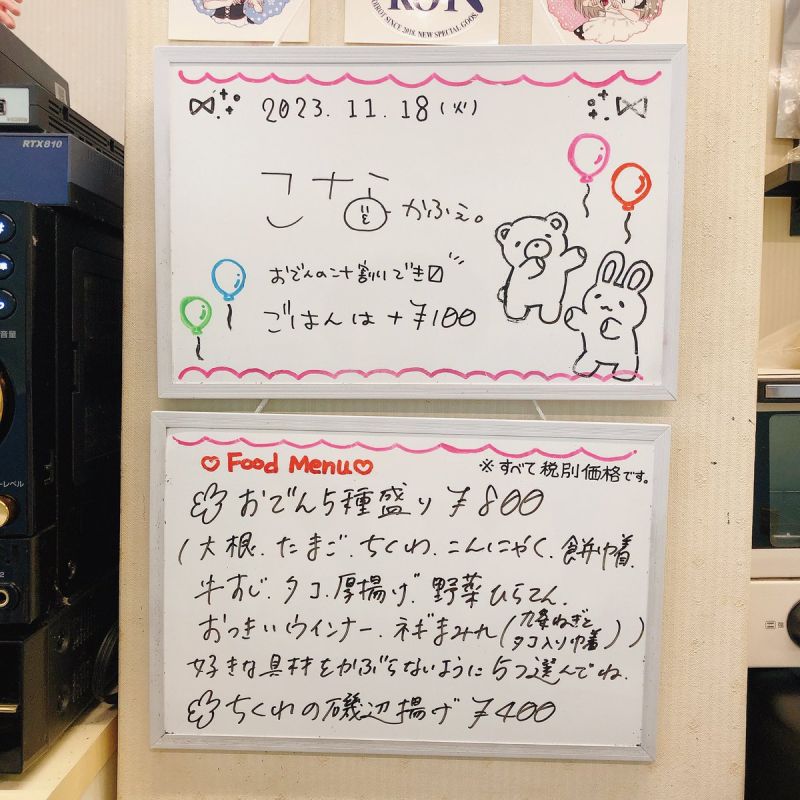 SINCE 2018. NEW SPECIAL GOODS.
RTX810
音量
2023.11.18(火)
こなかふぇ。
ごはんは+¥100
Food Menu
※すべて税別価格です。
おでん5種盛り ¥800
(大根.たまご.ちくわ.こんにゃく.餅巾着.
牛すじ.タコ.厚揚げ.野菜ひらてん.
おっきいウインナー.ネギまみれ(九条ねぎと
タコ入り巾着))
好きな具材をかぶらないように5つ選んでね.
ちくわの磯辺揚げ ¥400